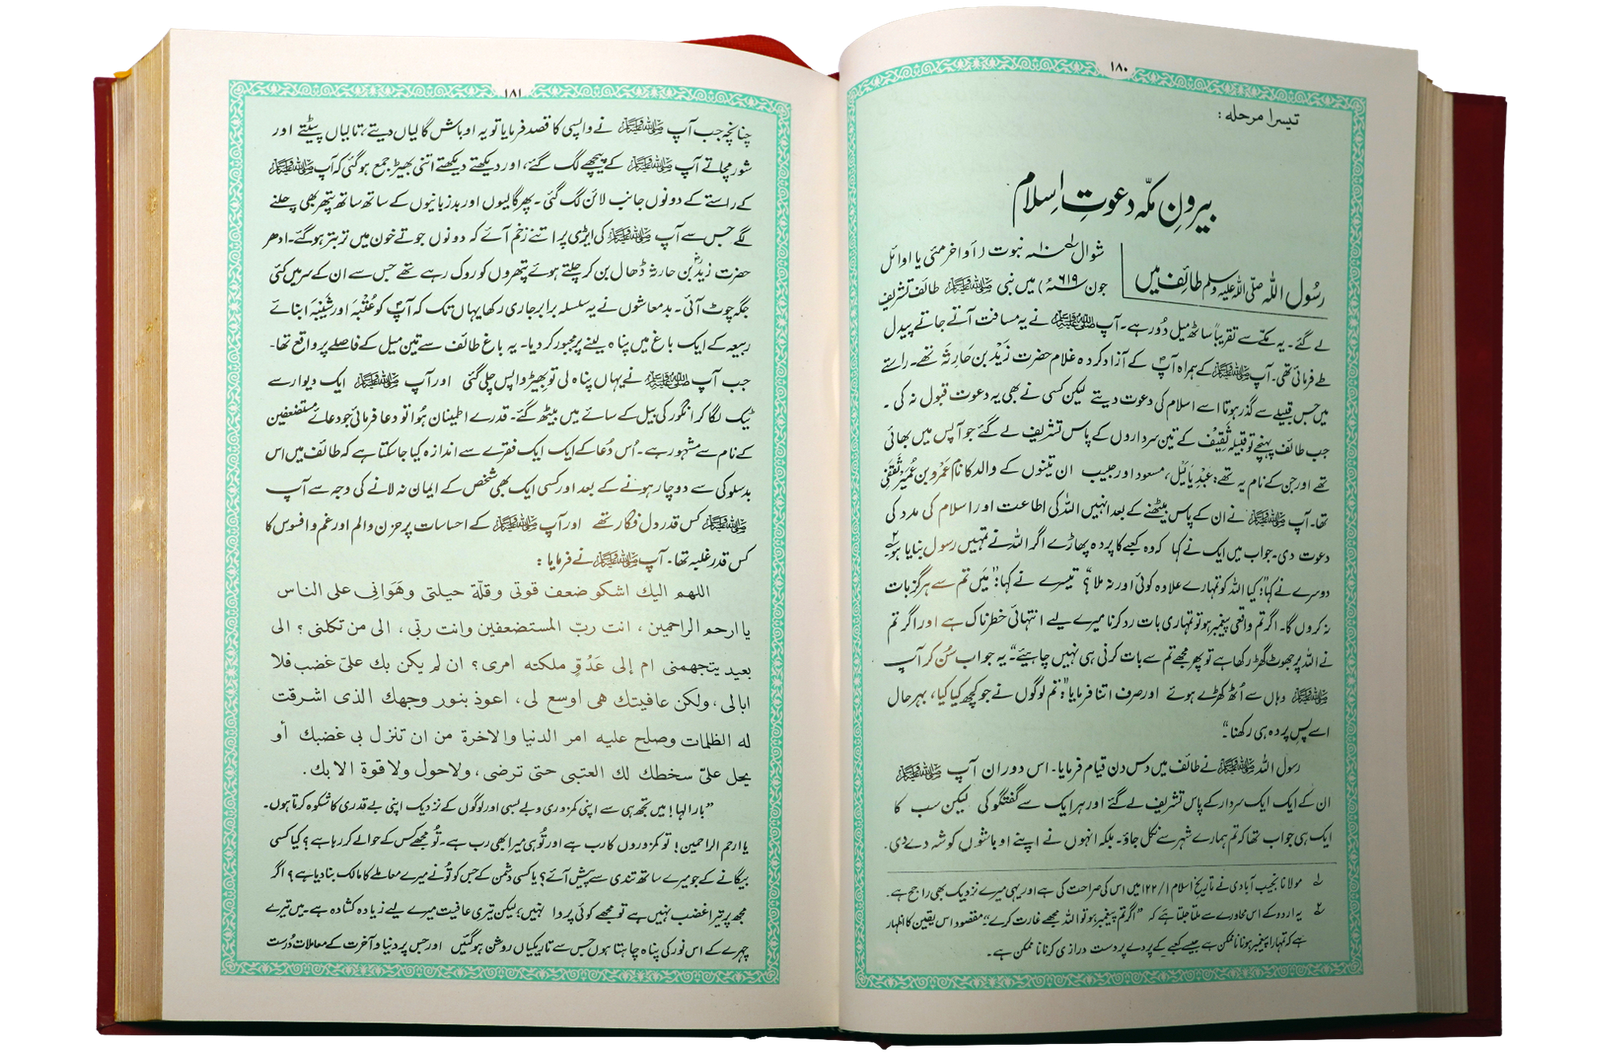 ۱۸۰
تیسرا مرحلہ:
بیرونِ مکہّ دعوتِ اِسلام
رسُول اللہ صلی اللہ علیہ وسلم طائف میں
شوال سنہ ۱۰ نبوت (اواخر مئی یا اوائل
جون سنہ ۶۱۹ء) میں نبی ﷺ طائف تشریف
لے گئے۔ یہ مکّے سے تقریباً ساٹھ میل دُور ہے۔ آپ ﷺ نے یہ مسافت آتے جاتے پیدل
طے فرمائی تھی۔ آپ ﷺ کے ہمراہ آپؐ کے آزاد کردہ غلام حضرت زَید بن حَارِثہ تھے۔ راستے
میں جس قبیلے سے گذر ہوتا اسے اسلام کی دعوت دیتے لیکن کسی نے بھی یہ دعوت قبول نہ کی۔
جب طائف پہنچے تو قبیلہ ثَقِیْف کے تین سرداروں کے پاس تشریف لے گئے جو آپس میں بھائی
تھے اور جن کے نام یہ تھے: عَبْدِ یَالَیْل، مسعود اور حبیب ان تینوں کے والد کا نام عَمْرو بن عُمَیْر ثَقَفی
تھا۔ آپ ﷺ نے ان کے پاس بیٹھنے کے بعد انہیں اللہ کی اطاعت اور اسلام کی مدد کی
دعوت دی۔ جواب میں ایک نے کہا کہ وہ کعبے کا پردہ پھاڑے اگر اللہ نے تمہیں رسول بنایا ہو۔ ۲
دوسرے نے کہا: "کیا اللہ کو تمہارے علاوہ کوئی اور نہ ملا؟" تیسرے نے کہا: "میَں تم سے ہرگز بات
نہ کروں گا۔ اگر تم واقعی پیغمبر ہو تو تمہاری بات رد کرنا میرے لیے انتہائی خطرناک ہے اور اگر تم
نے اللہ پر جھوٹ گھڑ رکھا ہے تو پھر مجھے تم سے بات کرنی ہی نہیں چاہیئے"۔ یہ جواب سُن کر آپ
ﷺ وہاں سے اُٹھ کھڑے ہوئے اور صرف اتنا فرمایا: "تم لوگوں نے جو کچھ کیا کیا، بہرحال
اسے پسِ پردہ ہی رکھنا"۔
رسول اللہ ﷺ نے طائف میں دس دن قیام فرمایا۔ اس دوران آپ ﷺ
ان کے ایک ایک سردار کے پاس تشریف لے گئے اور ہر ایک سے گفتگو کی لیکن سب کا
ایک ہی جواب تھا کہ تم ہمارے شہر سے نکل جاؤ۔ بلکہ انہوں نے اپنے اوباشوں کو شہ دے دی۔
۱ مولانا نجیب آبادی نے تاریخ اسلام ۱/۱۲۲ میں اس کی صراحت کی ہے اور یہی میرے نزدیک بھی راجح ہے۔
۲ یہ اردو کے اس محاورے سے ملتا جلتا ہے کہ "اگر تم پیغمبر ہو تو اللہ مجھے غارت کرے"۔ مقصود اس یقین کا اظہار
ہے کہ تمہارا پیغمبر ہونا ناممکن ہے جیسے کعبے کے پردے پر دست درازی کرنا ناممکن ہے۔
۱۸۱
چنانچہ جب آپ ﷺ نے واپسی کا قصد فرمایا تو یہ اوباش گالیاں دیتے، تالیاں پیٹتے اور
شور مچاتے آپ ﷺ کے پیچھے لگ گئے، اور دیکھتے دیکھتے اتنی بھیڑ جمع ہو گئی کہ آپ ﷺ
کے راستے کے دونوں جانب لائن لگ گئی۔ پھر گالیوں اور بدزبانیوں کے ساتھ ساتھ پتھر بھی چلنے
لگے جس سے آپ ﷺ کی ایڑی پر اتنے زخم آئے کہ دونوں جوتے خون میں تربتر ہو گئے۔ ادھر
حضرت زیدؓ بن حارثہ ڈھال بن کر چلتے ہوئے پتھروں کو روک رہے تھے جس سے ان کے سر میں کئی
جگہ چوٹ آئی۔ بدمعاشوں نے یہ سلسلہ برابر جاری رکھا یہاں تک کہ آپؐ کو عُتْبَہ اور شَیْبَہ ابنائے
ربیعہ کے ایک باغ میں پناہ لینے پر مجبور کر دیا۔ یہ باغ طائف سے تین میل کے فاصلے پر واقع تھا۔
جب آپ ﷺ نے یہاں پناہ لی تو بھیڑ واپس چلی گئی اور آپ ﷺ ایک دیوار سے
ٹیک لگا کر انگور کی بیل کے سائے میں بیٹھ گئے۔ قدرے اطمینان ہُوا تو دعا فرمائی جو دعائے مستضعفین
کے نام سے مشہور ہے۔ اُس دُعا کے ایک ایک فقرے سے اندازہ کیا جا سکتا ہے کہ طائف میں اس
بدسلوکی سے دوچار ہونے کے بعد اور کسی ایک بھی شخص کے ایمان نہ لانے کی وجہ سے آپ
ﷺ کس قدر دل فگار تھے اور آپ ﷺ کے احساسات پر حزن و الم اور غم و افسوس کا
کس قدر غلبہ تھا۔ آپ ﷺ نے فرمایا:
اللهم اليك اشكو ضعف قوتى وقلّة حيلتى وهَوَانى على الناس
يا ارحم الراحمين، انت ربّ المستضعفين وانت ربّى، الى من تكلنى؟ الى
بعيد يتجهمنى ام إلى عَدُوٍّ ملكته امرى؟ ان لم يكن بك علىّ غضب فلا
ابالى، ولكن عافيتك هى اوسع لى، اعوذ بنور وجهك الذى اشرقت
له الظلمات وصلح عليه امر الدنيا والاخرة من ان تنزل بى غضبك أو
يحل علىّ سخطك لك العتبى حتى ترضى، ولا حول ولا قوة الا بك.
"بارالہا! میں تجھ ہی سے اپنی کمزوری و بے بسی اور لوگوں کے نزدیک اپنی بے قدری کا شکوہ کرتا ہوں۔
یا ارحم الراحمین! تو کمزوروں کا رب ہے اور تُو ہی میرا بھی رب ہے۔ تُو مجھے کس کے حوالے کر رہا ہے؟ کیا کسی
بیگانے کے جو میرے ساتھ تندی سے پیش آئے؟ یا کسی دشمن کے جس کو تُو نے میرے معاملے کا مالک بنا دیا ہے؟ اگر
مجھ پر تیرا غضب نہیں ہے تو مجھے کوئی پروا نہیں؛ لیکن تیری عافیت میرے لیے زیادہ کشادہ ہے۔ میں تیرے
چہرے کے اس نور کی پناہ چاہتا ہوں جس سے تاریکیاں روشن ہو گئیں اور جس پر دنیا و آخرت کے معاملات دُرست